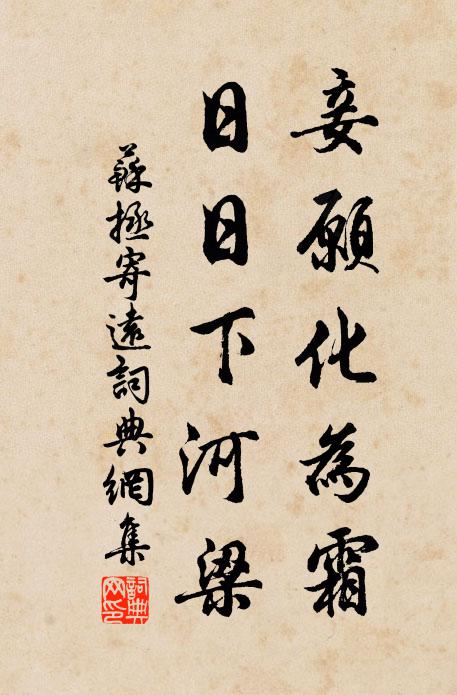 妾願化為霜
日日下河梁
蘇拯寄遠詞典網集
詞典网印